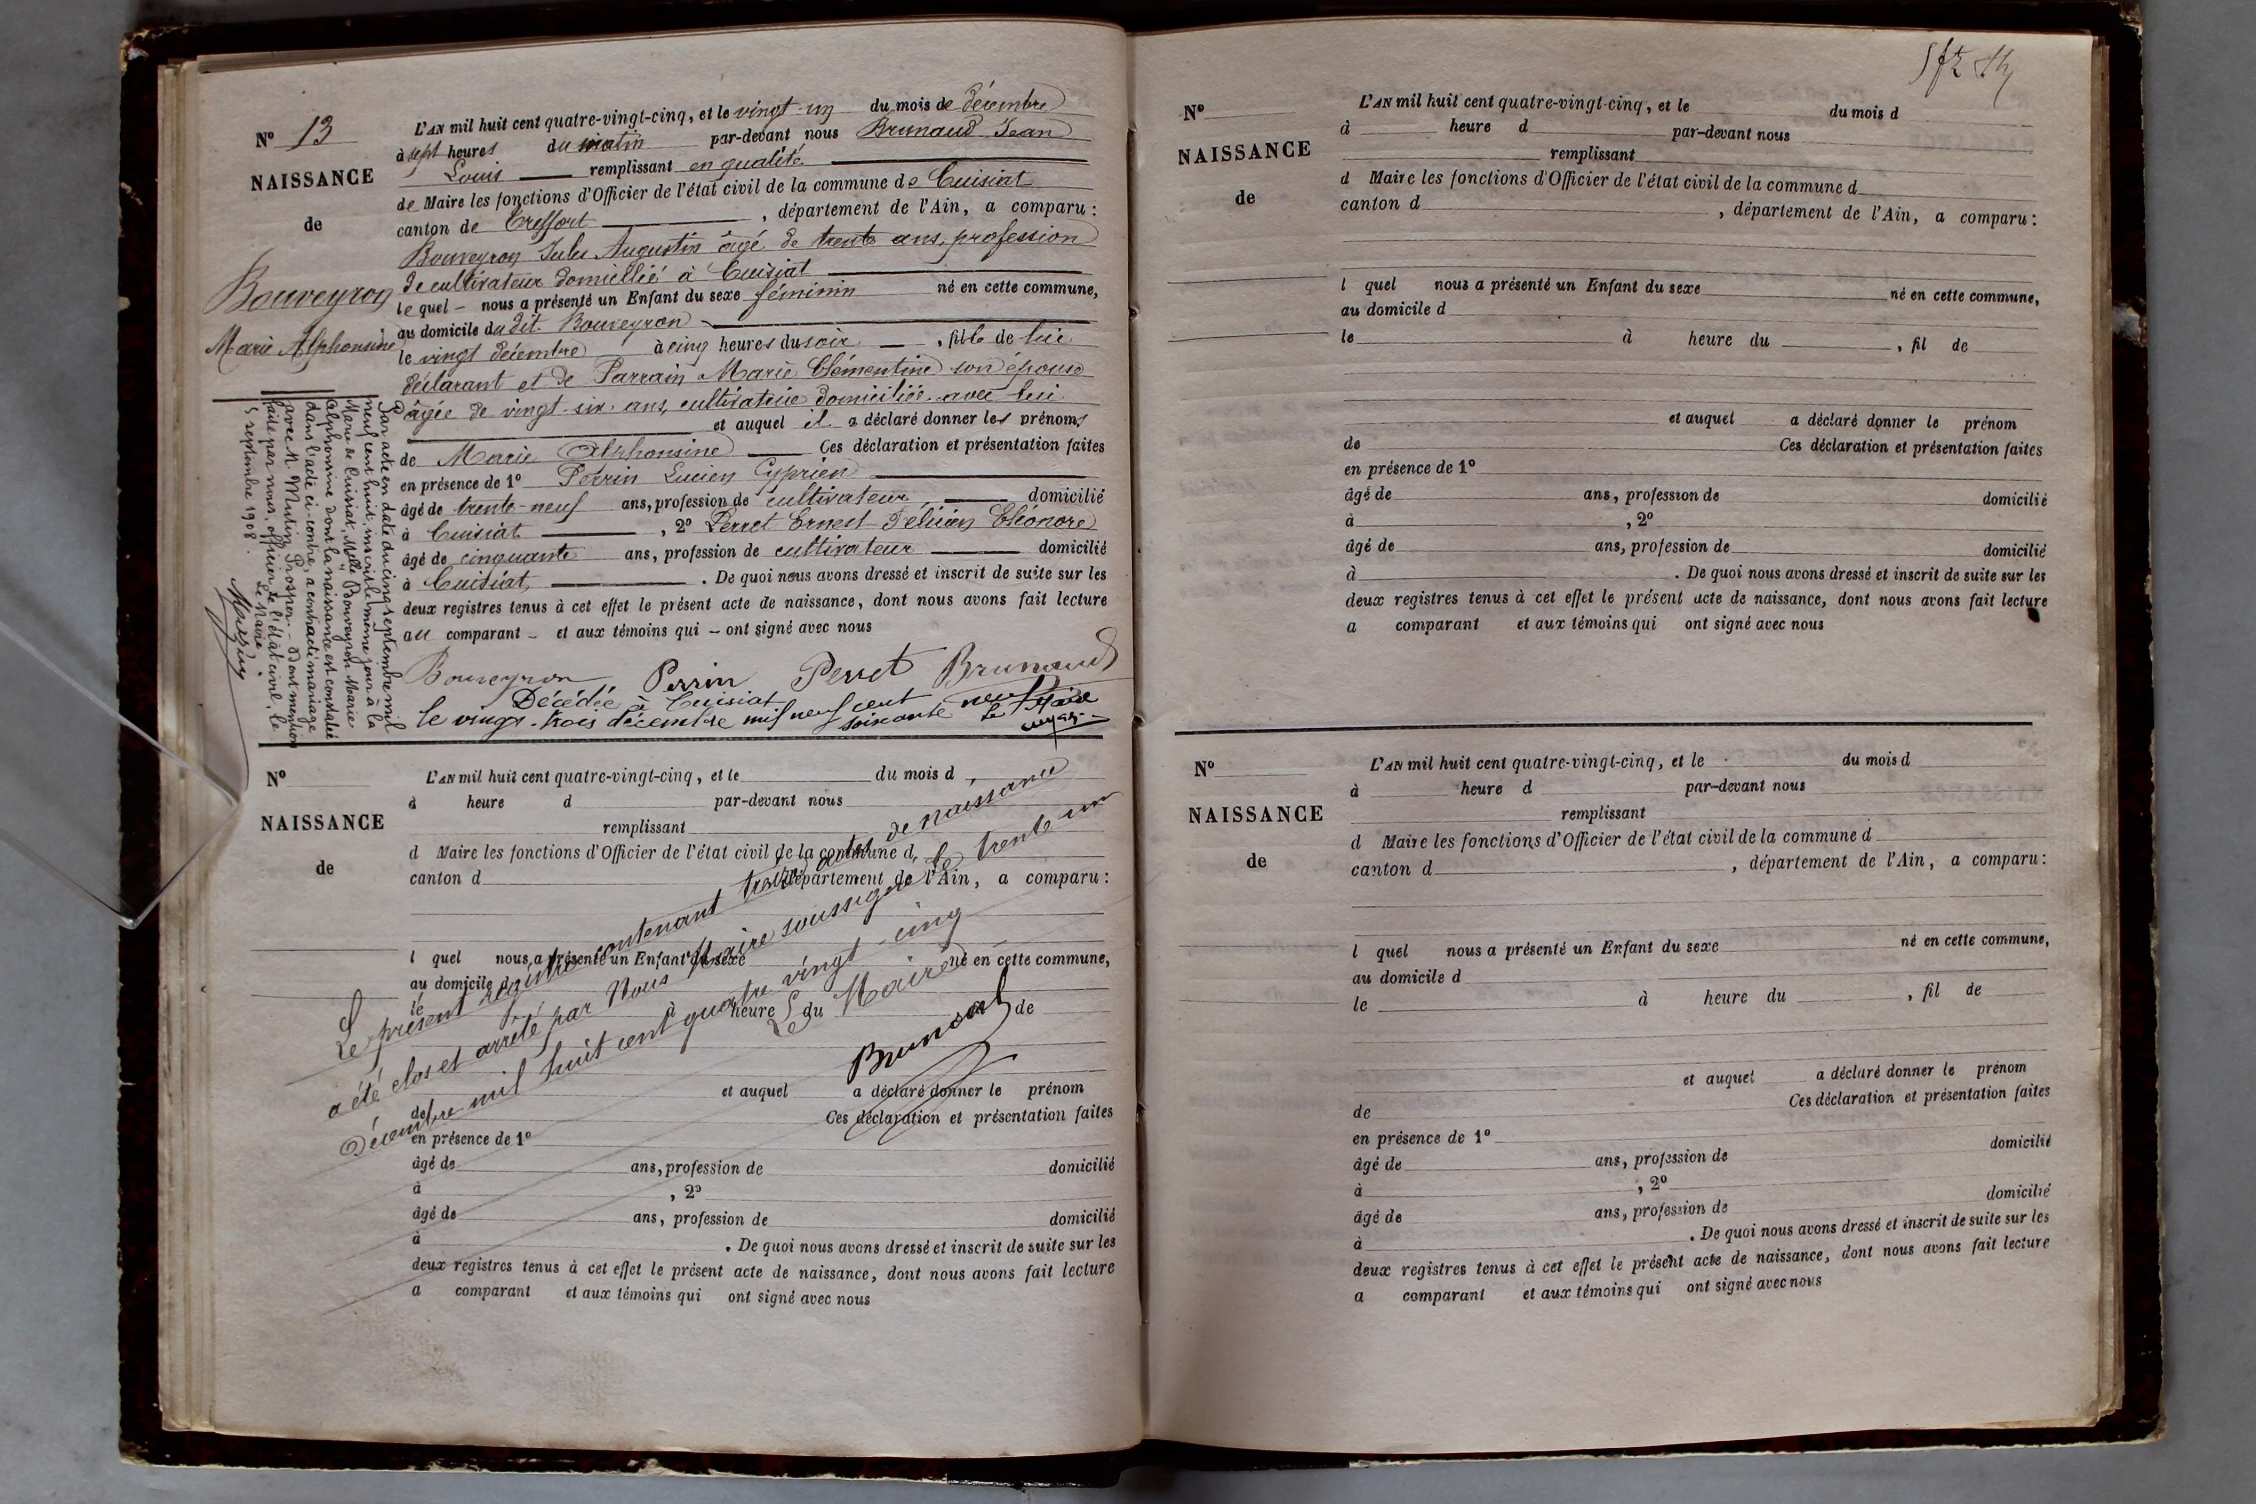 N° 13
NAISSANCE
de
Bouveyron
Marie Alphonsine
L'AN mil huit cent quatre-vingt-cinq, et le vingt-un du mois de décembre
à sept heures du matin par-devant nous Brunaud Jean
Louis remplissant en qualité
de Maire les fonctions d'Officier de l'état civil de la commune de Cuisiat
canton de Treffort, département de l'Ain, a comparu :
Bouveyron Jules Augustin âgé de trente ans, profession
de cultivateur domicilié à Cuisiat
le quel nous a présenté un Enfant du sexe féminin né en cette commune,
au domicile du dit Bouveyron
le vingt décembre à cinq heures du soir, fille de lui
déclarant et de Parrain Marie Clémentine son épouse
âgée de vingt-six ans, cultivatrice domiciliée avec lui
et auquel il a déclaré donner les prénoms
de Marie Alphonsine Ces déclaration et présentation faites
en présence de 1° Perrin Lucien Cyprien
âgé de trente-neuf ans, profession de cultivateur domicilié
à Cuisiat, 2° Perret Ernest Félicien Eléonore
âgé de cinquante ans, profession de cultivateur domicilié
à Cuisiat. De quoi nous avons dressé et inscrit de suite sur les
deux registres tenus à cet effet le présent acte de naissance, dont nous avons fait lecture
au comparant et aux témoins qui ont signé avec nous
Bouveyron Perrin Perret Brunaud
Décédée à Cuisiat
le vingt-trois décembre mil neuf cent
soixante neuf
Le Maire
Par acte en date du cinq septembre mil
neuf cent huit, inscrit le même jour à la
Mairie de Cuisiat, Melle Bouveyron Marie
Alphonsine dont la naissance est constatée
dans l'acte ci-contre, a contracté mariage
avec M. Mutin Prosper. - Dont mention
faite par nous, officier de l'état civil, le
5 septembre 1908.
Le Maire
N°
NAISSANCE
de
L'AN mil huit cent quatre-vingt-cinq, et le du mois d
à heure d par-devant nous
remplissant
d Maire les fonctions d'Officier de l'état civil de la commune d
canton d , département de l'Ain, a comparu :
l quel nous a présenté un Enfant du sexe né en cette commune,
au domicile d
le à heure du de
et auquel a déclaré donner le prénom
de Ces déclaration et présentation faites
en présence de 1°
âgé de ans, profession de domicilié
à , 2°
âgé de ans, profession de domicilié
à . De quoi nous avons dressé et inscrit de suite sur les
deux registres tenus à cet effet le présent acte de naissance, dont nous avons fait lecture
a comparant et aux témoins qui ont signé avec nous
Le présent registre contenant treize actes de naissance
a été clos et arrêté par Nous Maire soussigné le trente un
Décembre mil huit cent quatre vingt-cinq
Le Maire
Brunaud
N°
NAISSANCE
de
L'AN mil huit cent quatre-vingt-cinq, et le du mois d
à heure d par-devant nous
remplissant
d Maire les fonctions d'Officier de l'état civil de la commune d
canton d , département de l'Ain, a comparu :
l quel nous a présenté un Enfant du sexe né en cette commune,
au domicile d
le à heure du , fil de
et auquel a déclaré donner le prénom
de Ces déclaration et présentation faites
en présence de 1°
âgé de ans, profession de domicilié
à , 2°
âgé de ans, profession de domicilié
à . De quoi nous avons dressé et inscrit de suite sur les
deux registres tenus à cet effet le présent acte de naissance, dont nous avons fait lecture
a comparant et aux témoins qui ont signé avec nous
N°
NAISSANCE
de
L'AN mil huit cent quatre-vingt-cinq, et le du mois d
à heure d par-devant nous
remplissant
d Maire les fonctions d'Officier de l'état civil de la commune d
canton d , département de l'Ain, a comparu :
l quel nous a présenté un Enfant du sexe né en cette commune,
au domicile d
le à heure du , fil de
et auquel a déclaré donner le prénom
de Ces déclaration et présentation faites
en présence de 1°
âgé de ans, profession de domicilié
à , 2°
âgé de ans, profession de domicilié
à . De quoi nous avons dressé et inscrit de suite sur les
deux registres tenus à cet effet le présent acte de naissance, dont nous avons fait lecture
a comparant et aux témoins qui ont signé avec nous